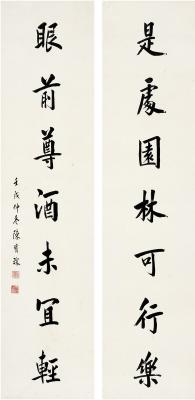 是處園林可行樂
眼前尊酒未宜輕
壬戌仲冬陳寶琛